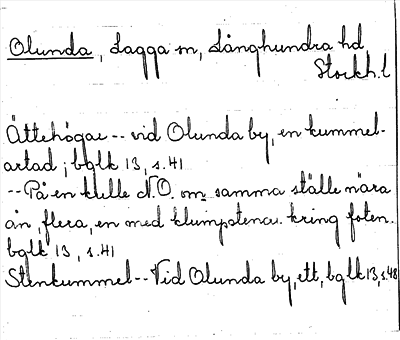 Olunda, Lagga sn, Långhundra hd,
Stockh.l
Ättehögar -- vid Olunda by, en kummel-
artad; bglk 13, s.41
-- På en kulle N.O. om samma ställe nära
ån, flera, en med klumpstenar kring foten.
bglk 13, s.41
Stenkummel -- Vid Olunda by, ett, bglk 13, s.48